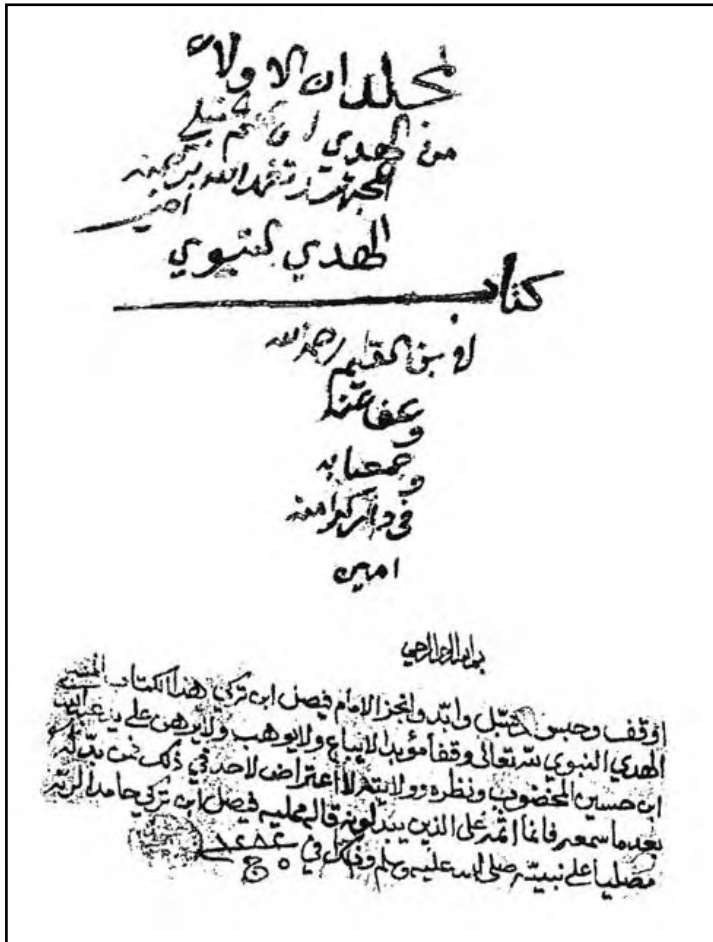 المجلدان الاولان
من الهدي
المجتهد تغمد الله برحمته
امين
الهدي النبوي
كتاب
لابن القيم رحمه الله
وعفا عنه
وجمعنا به
في دار كرامته
امين
بسم الله الرحمن الرحيم
اوقف وحبس وسبل وابد وانجز الامام فيصل ابن تركي هذا الكتاب المسمى
الهدي النبوي لله تعالى وقفا مؤبدا لا يباع ولا يوهب ولا يرهن على يد عبد الله
ابن حسين المخضوب ونظره اعتراض لاحد في ذلك فمن بدله
بعدما سمعه فانما اثمه على الذين يبدلونه قاله ممليه فيصل ابن تركي حامدا لربه
مصليا على نبيه صلى الله عليه وسلم وذلك في